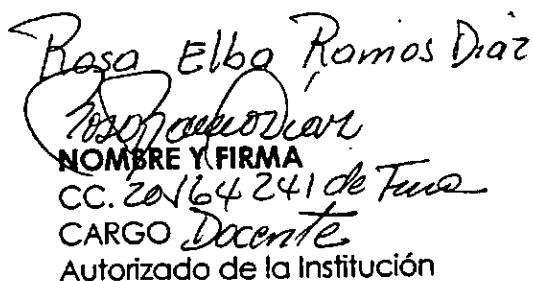 Rosa Elba Ramos Diaz
Rosa Ramos Diaz
NOMBRE Y FIRMA
CC. 20164241 de
CARGO Docente
Autorizado de la Institución